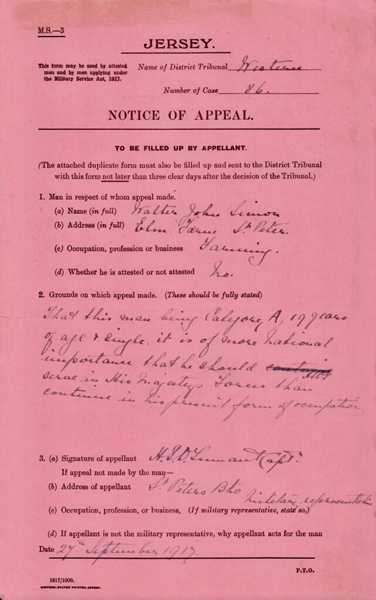 M.S.—3
JERSEY.
This form may be used by attested
men and by men applying under
the Military Service Act, 1917.
Name of District Tribunal Western
Number of Case 86.
NOTICE OF APPEAL.
TO BE FILLED UP BY APPELLANT.
(The attached duplicate form must also be filled up and sent to the District Tribunal
with this form not later than three clear days after the decision of the Tribunal.)
1. Man in respect of whom appeal made.
(a) Name (in full) Walter John Simon
(b) Address (in full) Elm Farm St Peter.
(c) Occupation, profession or business Farming.
(d) Whether he is attested or not attested No.
2. Grounds on which appeal made. (These should be fully stated)
That this man being Category A, 19 years
of age & single, it is of more National
importance that he should
serve in His Majestys Forces than
continue in his present form of occupation
3. (a) Signature of appellant Capt.
If appeal not made by the man—
(b) Address of appellant St Peters Bks
Military representative
(c) Occupation, profession, or business. (If military representative, state so.)
(d) If appellant is not the military representative, why appellant acts for the man
Date 27th September 1917.
P.T.O.
1917/1000.